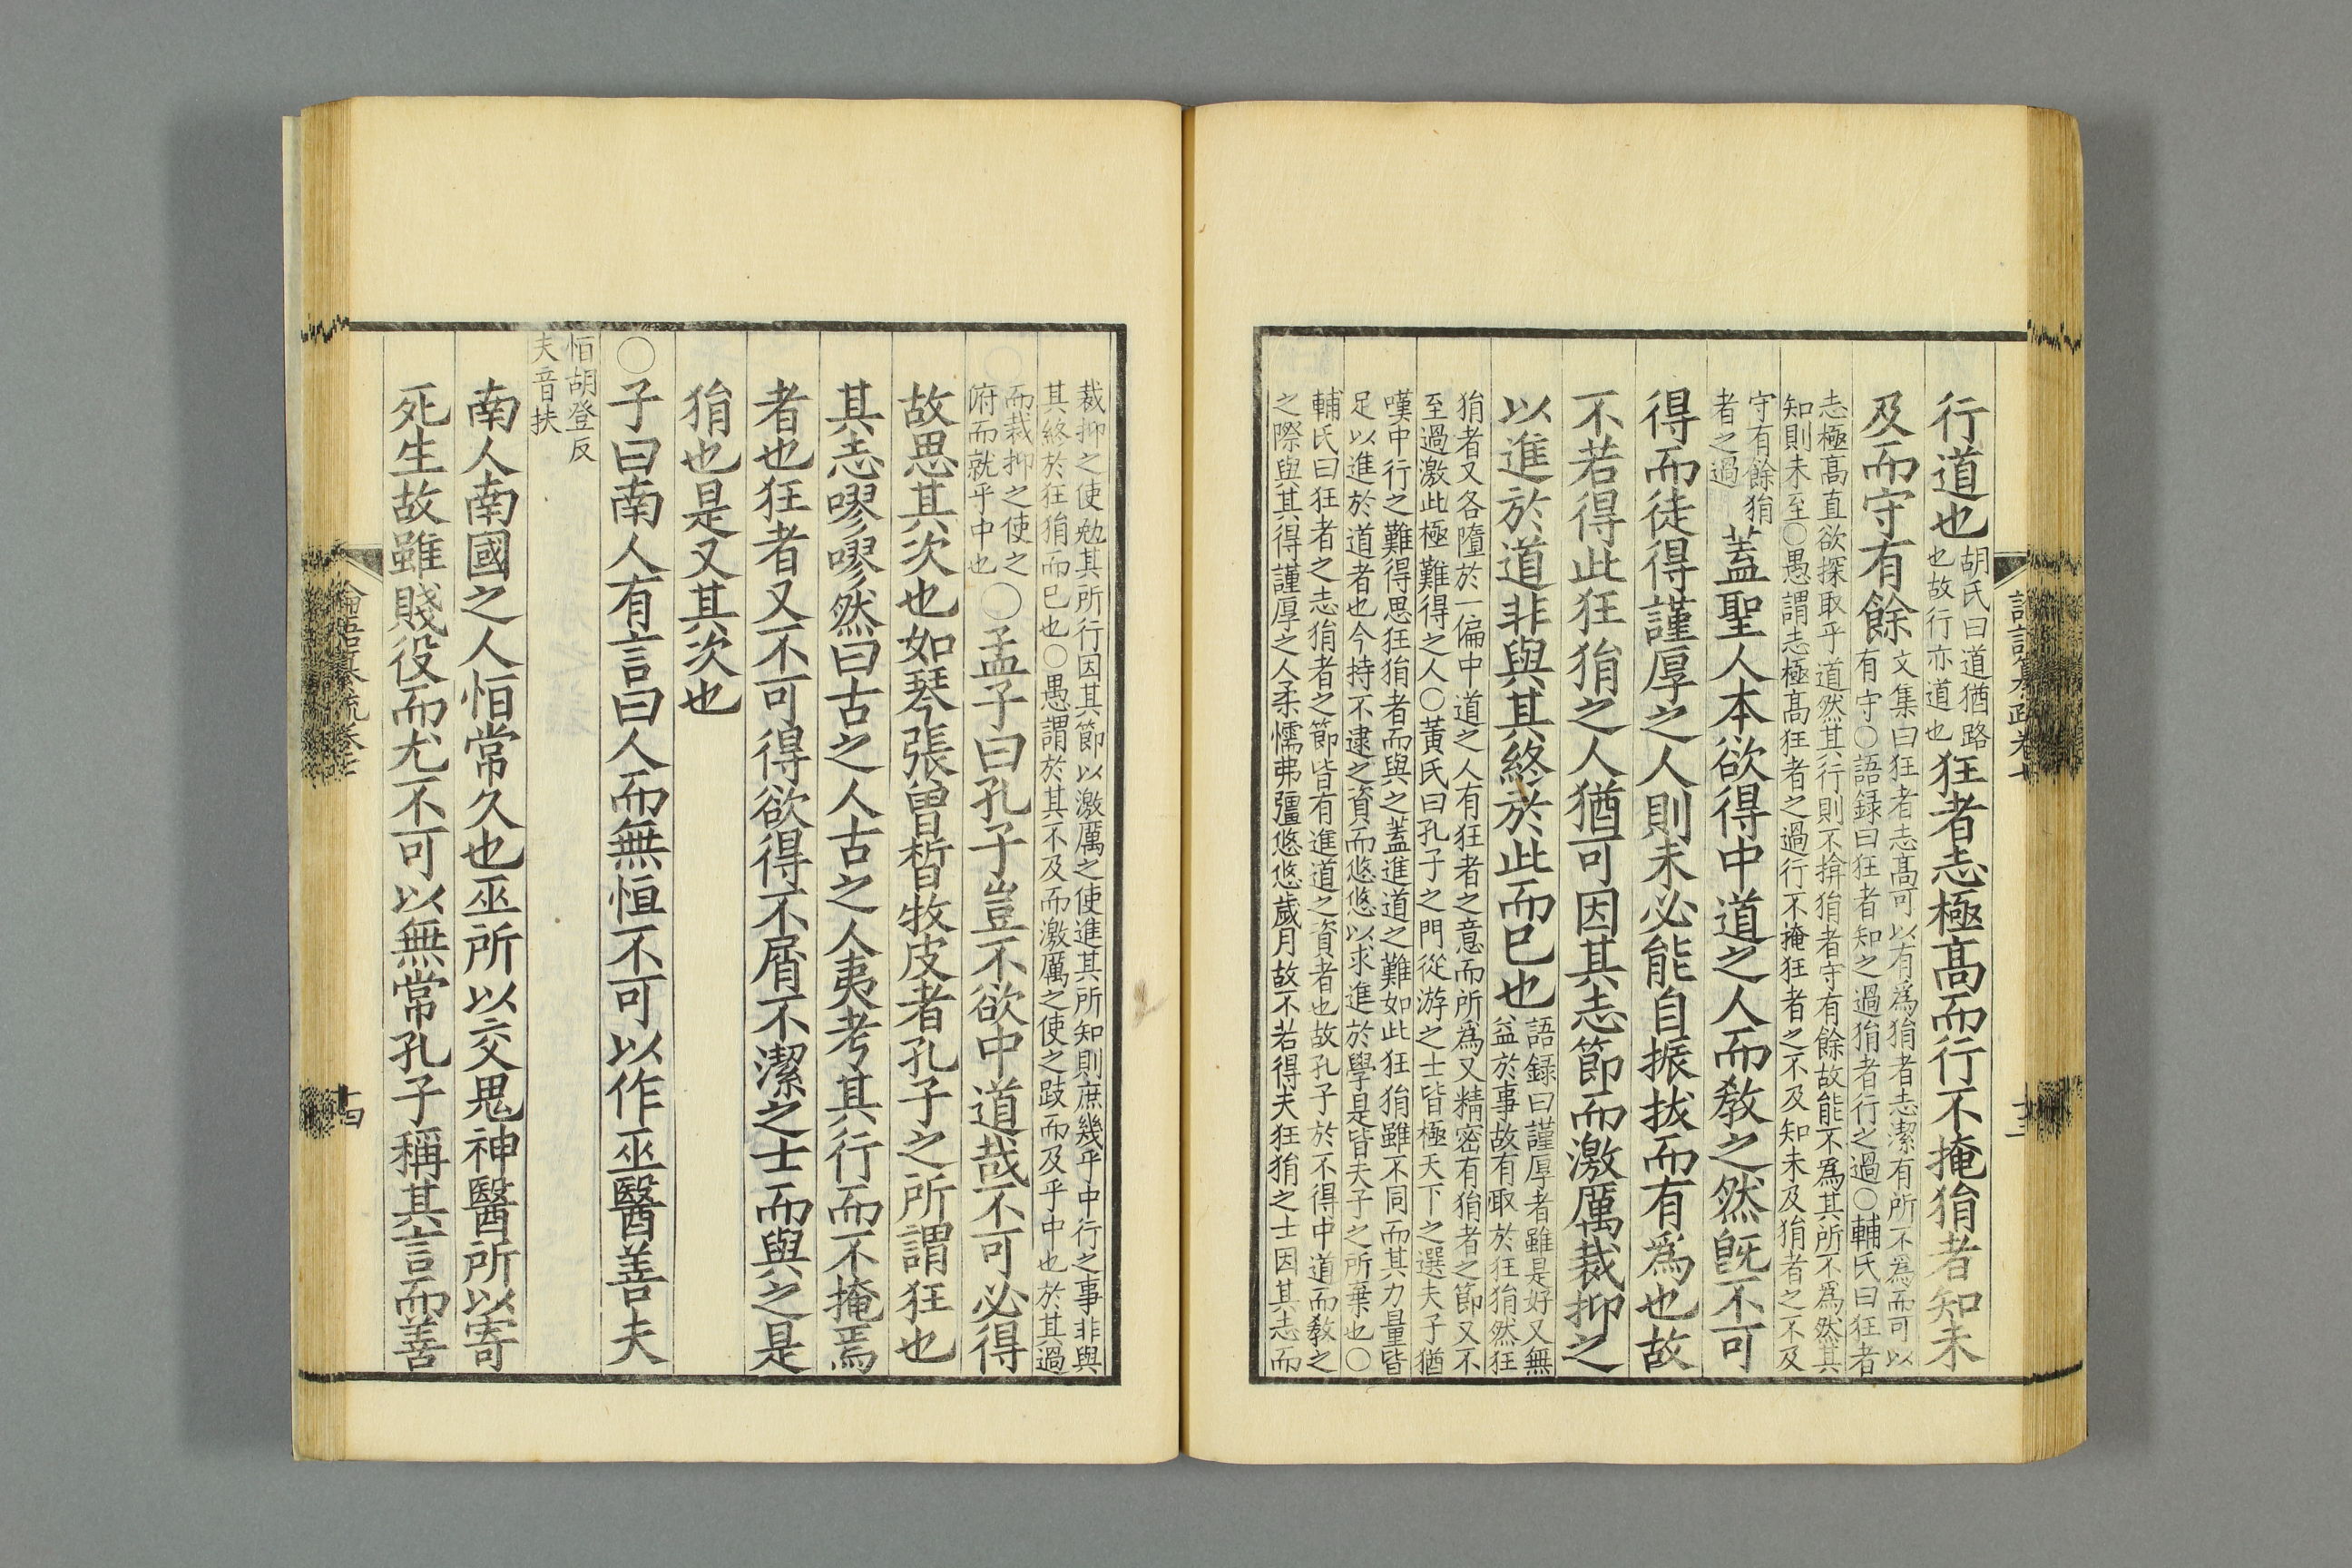 行道也胡氏曰道猶路
也故行亦道也狂者志極高而行不掩狷者知未
及而守有餘文集曰狂者志高可以有爲狷者志潔有所不爲而可以
有守○語録曰狂者知之過狷者行之過○輔氏曰狂者
志極高直欲探取乎道然其行則不揜狷者守有餘故能不爲其所不爲然其
知則未至○愚謂志極高狂者之過行不掩狂者之不及知未及狷者之不及
守有餘狷
者之過蓋聖人本欲得中道之人而敎之然旣不可
得而徒得謹厚之人則未必能自振拔而有爲也故
不若得此狂狷之人猶可因其志節而激厲裁抑之
以進於道非與其終於此而已也語録曰謹厚者雖是好又無
益於事故有取於狂狷然狂
狷者又各墮於一偏中道之人有狂者之意而所爲又精密有狷者之節又不
至過激此極難得之人○黃氏曰孔子之門從游之士皆極天下之選夫子猶
嘆中行之難得思狂狷者而與之蓋進道之難如此狂狷雖不同而其力量皆
足以進於道者也今持不逮之資而悠悠以求進於學是皆夫子之所棄也○
輔氏曰狂者之志狷者之節皆有進道之資者也故孔子於不得中道而敎之
之際與其得謹厚之人柔懦弗彊悠悠歲月故不若得夫狂狷之士因其志而
裁抑之使勉其所行因其節以激厲之使進其所知則庶幾乎中行之事非與
其終於狂狷而已也○愚謂於其不及而激厲之使之跂而及乎中也於其過
而裁抑之使之
俯而就乎中也○孟子曰孔子豈不欲中道哉不可必得
故思其次也如琴張曾晳牧皮者孔子之所謂狂也
其志嘐嘐然曰古之人古之人夷考其行而不掩焉
者也狂者又不可得欲得不屑不潔之士而與之是
狷也是又其次也
○子曰南人有言曰人而無恒不可以作巫醫善夫
恒胡登反
夫音扶
南人南國之人恒常久也巫所以交鬼神醫所以寄
死生故雖賤役而尤不可以無常孔子稱其言而善
論語纂疏卷七
十四